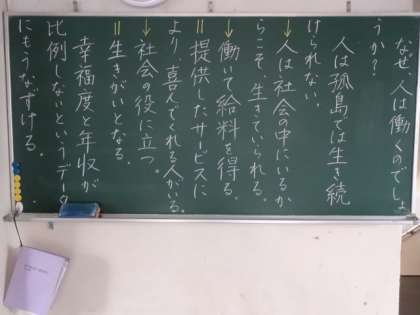 なぜ、人は働くのでしょ
うか？
人は孤島では生き続
けられない。
↓人は社会中にいるか
らこそ、生きていられる。
↓働いて給料を得る。
＝提供したサービスに
より喜んでくれる人がいる。
↓社会の役に立つ。
＝生きがいとなる。
幸福度と年収が
比例しないというデータ
にもうなずける。